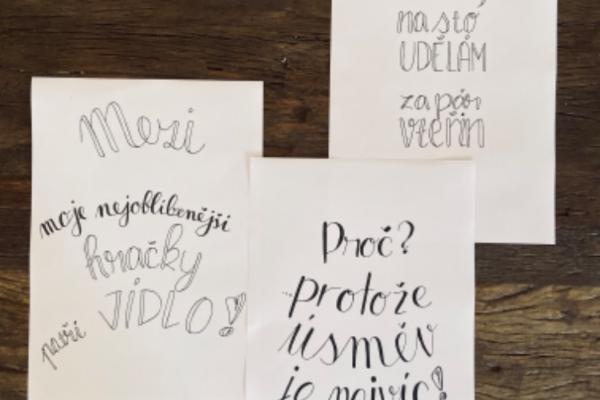 Mezi
moje nejoblíbenější
hračky
patří JÍDLO!
na sto
UDĚLÁM
za pár
vteřin
Proč?
protože
úsměv
je nejvíc!